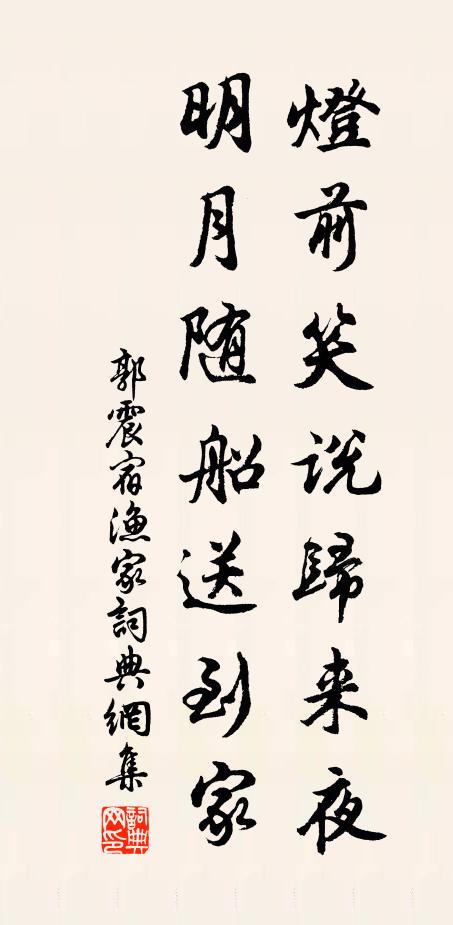 燈前笑説歸来夜
明月随船送到家
郭震宿漁家詞典網集
詞典网印